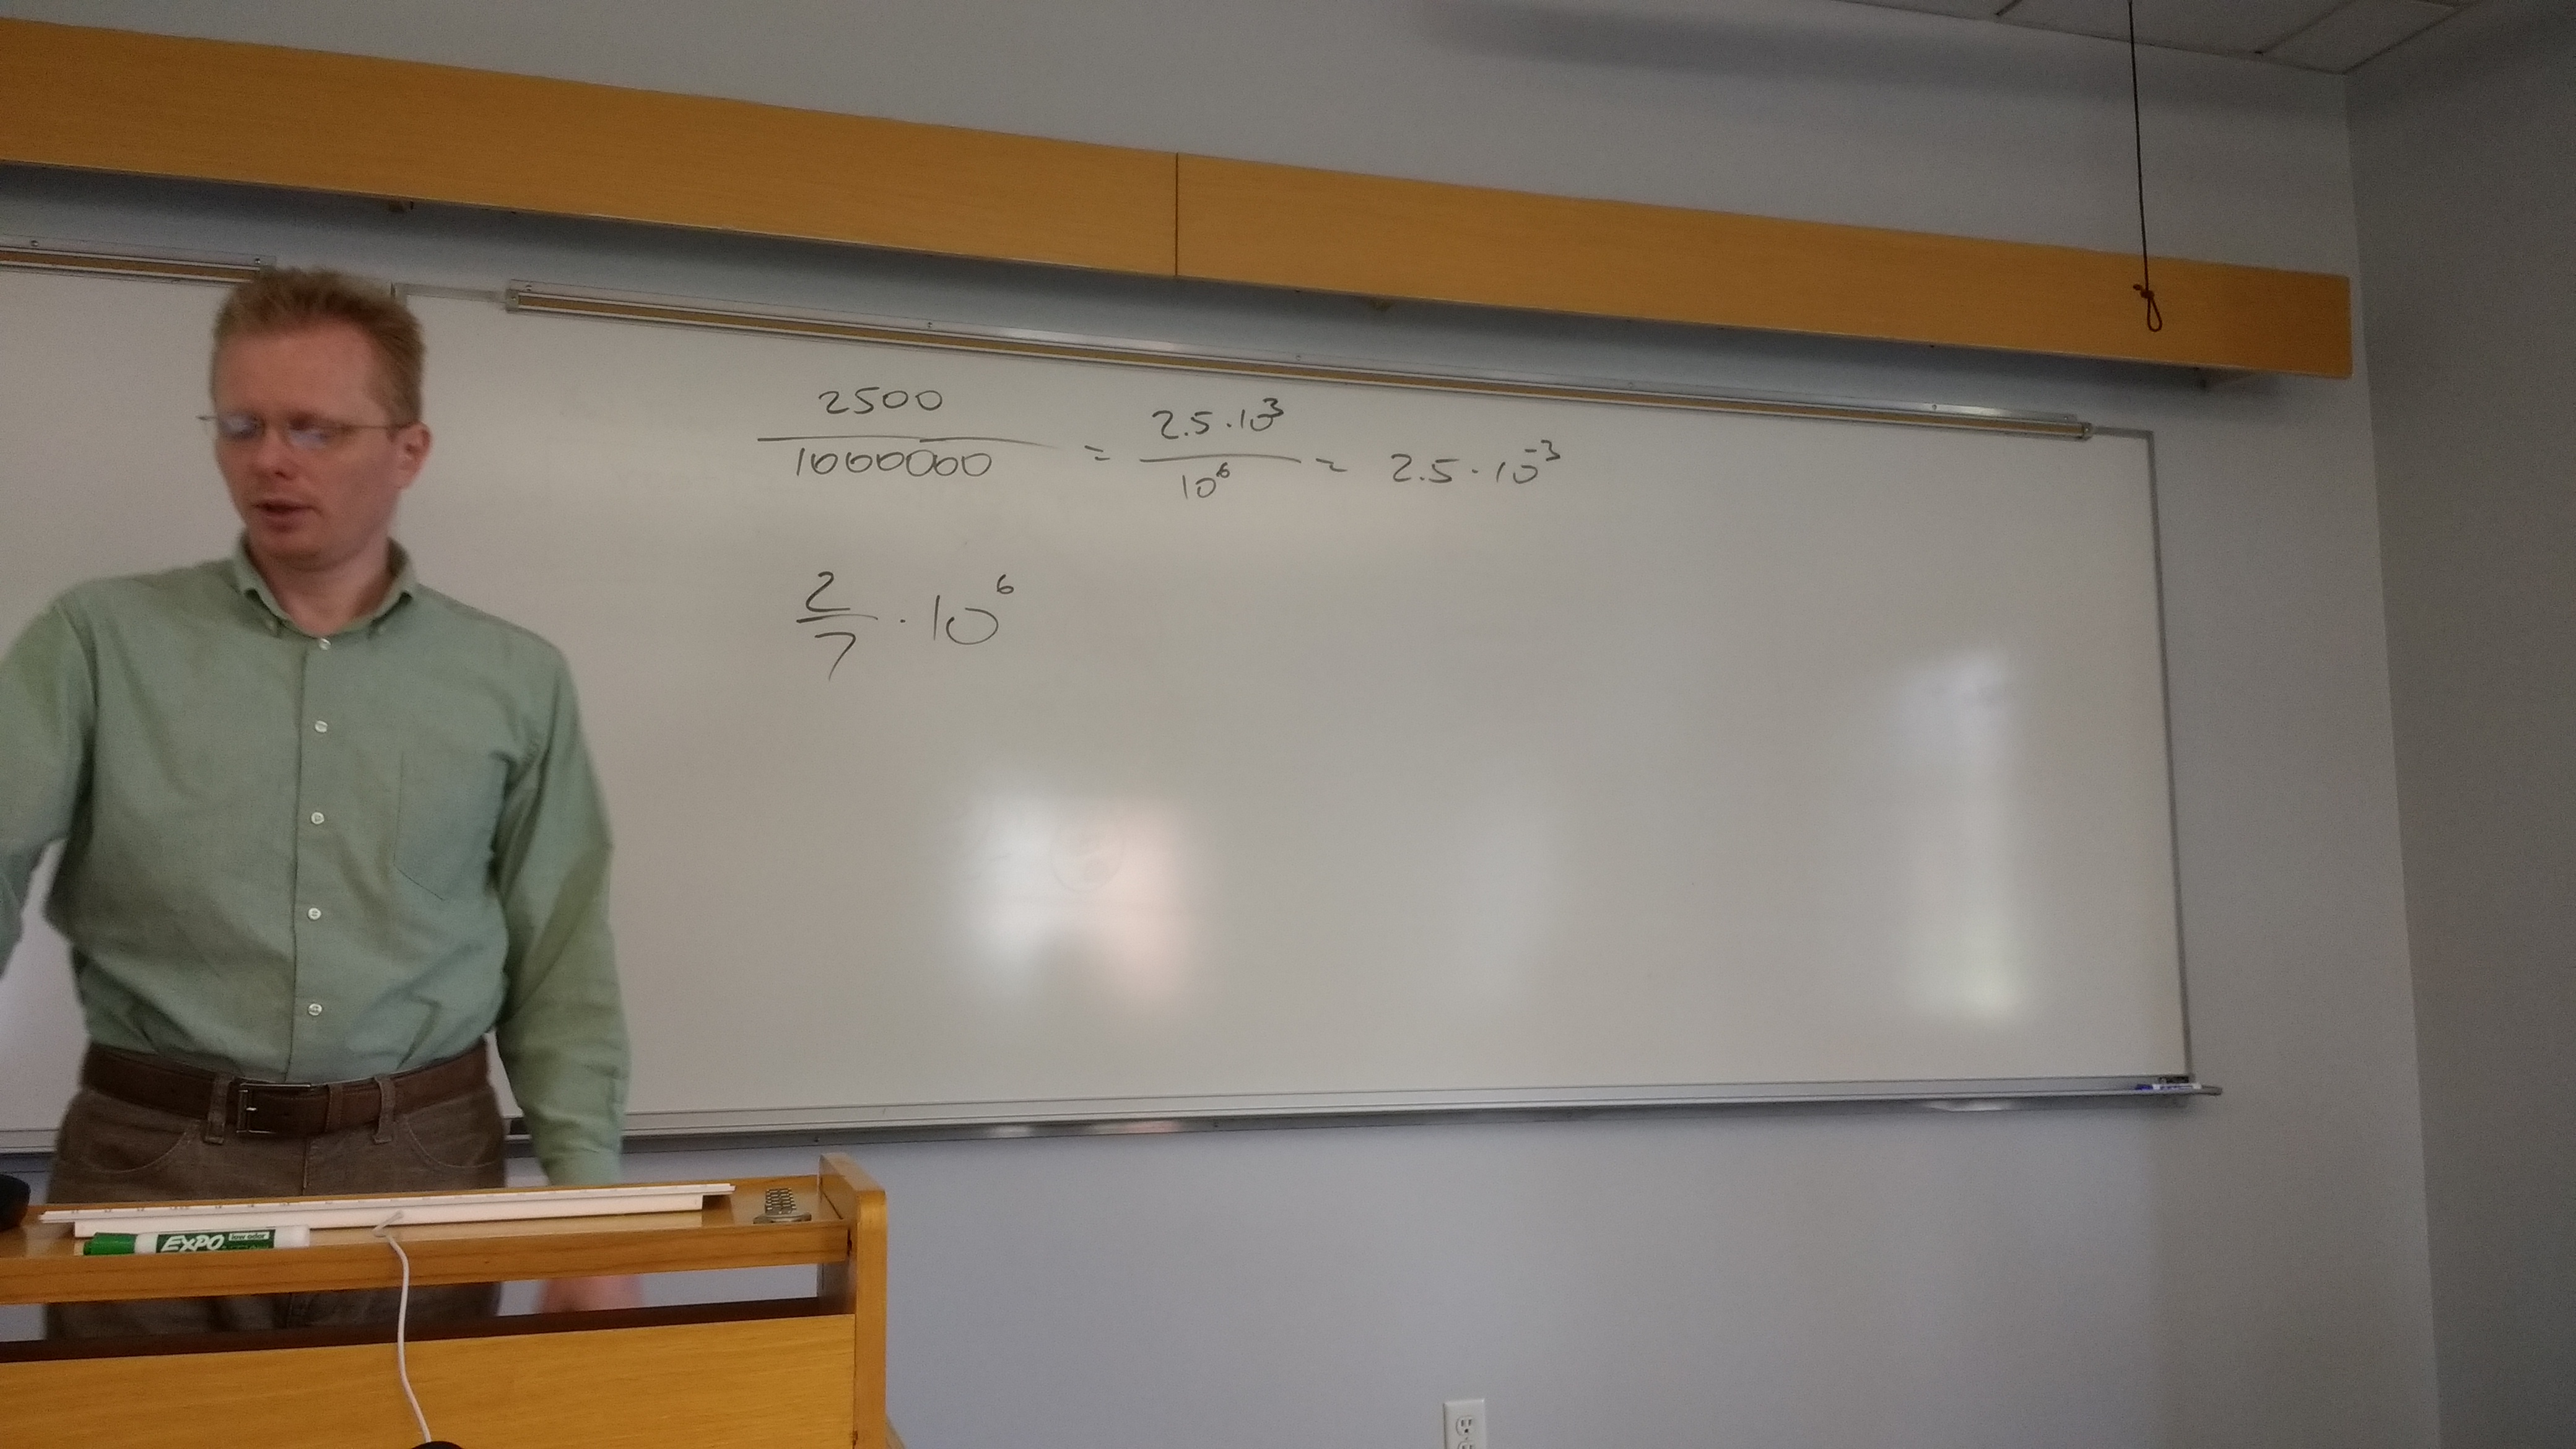 2500
1000000
=
2.5 · 10³
10⁶
=
2.5 · 10⁻³
2
7
· 10⁶
EXPO low odor